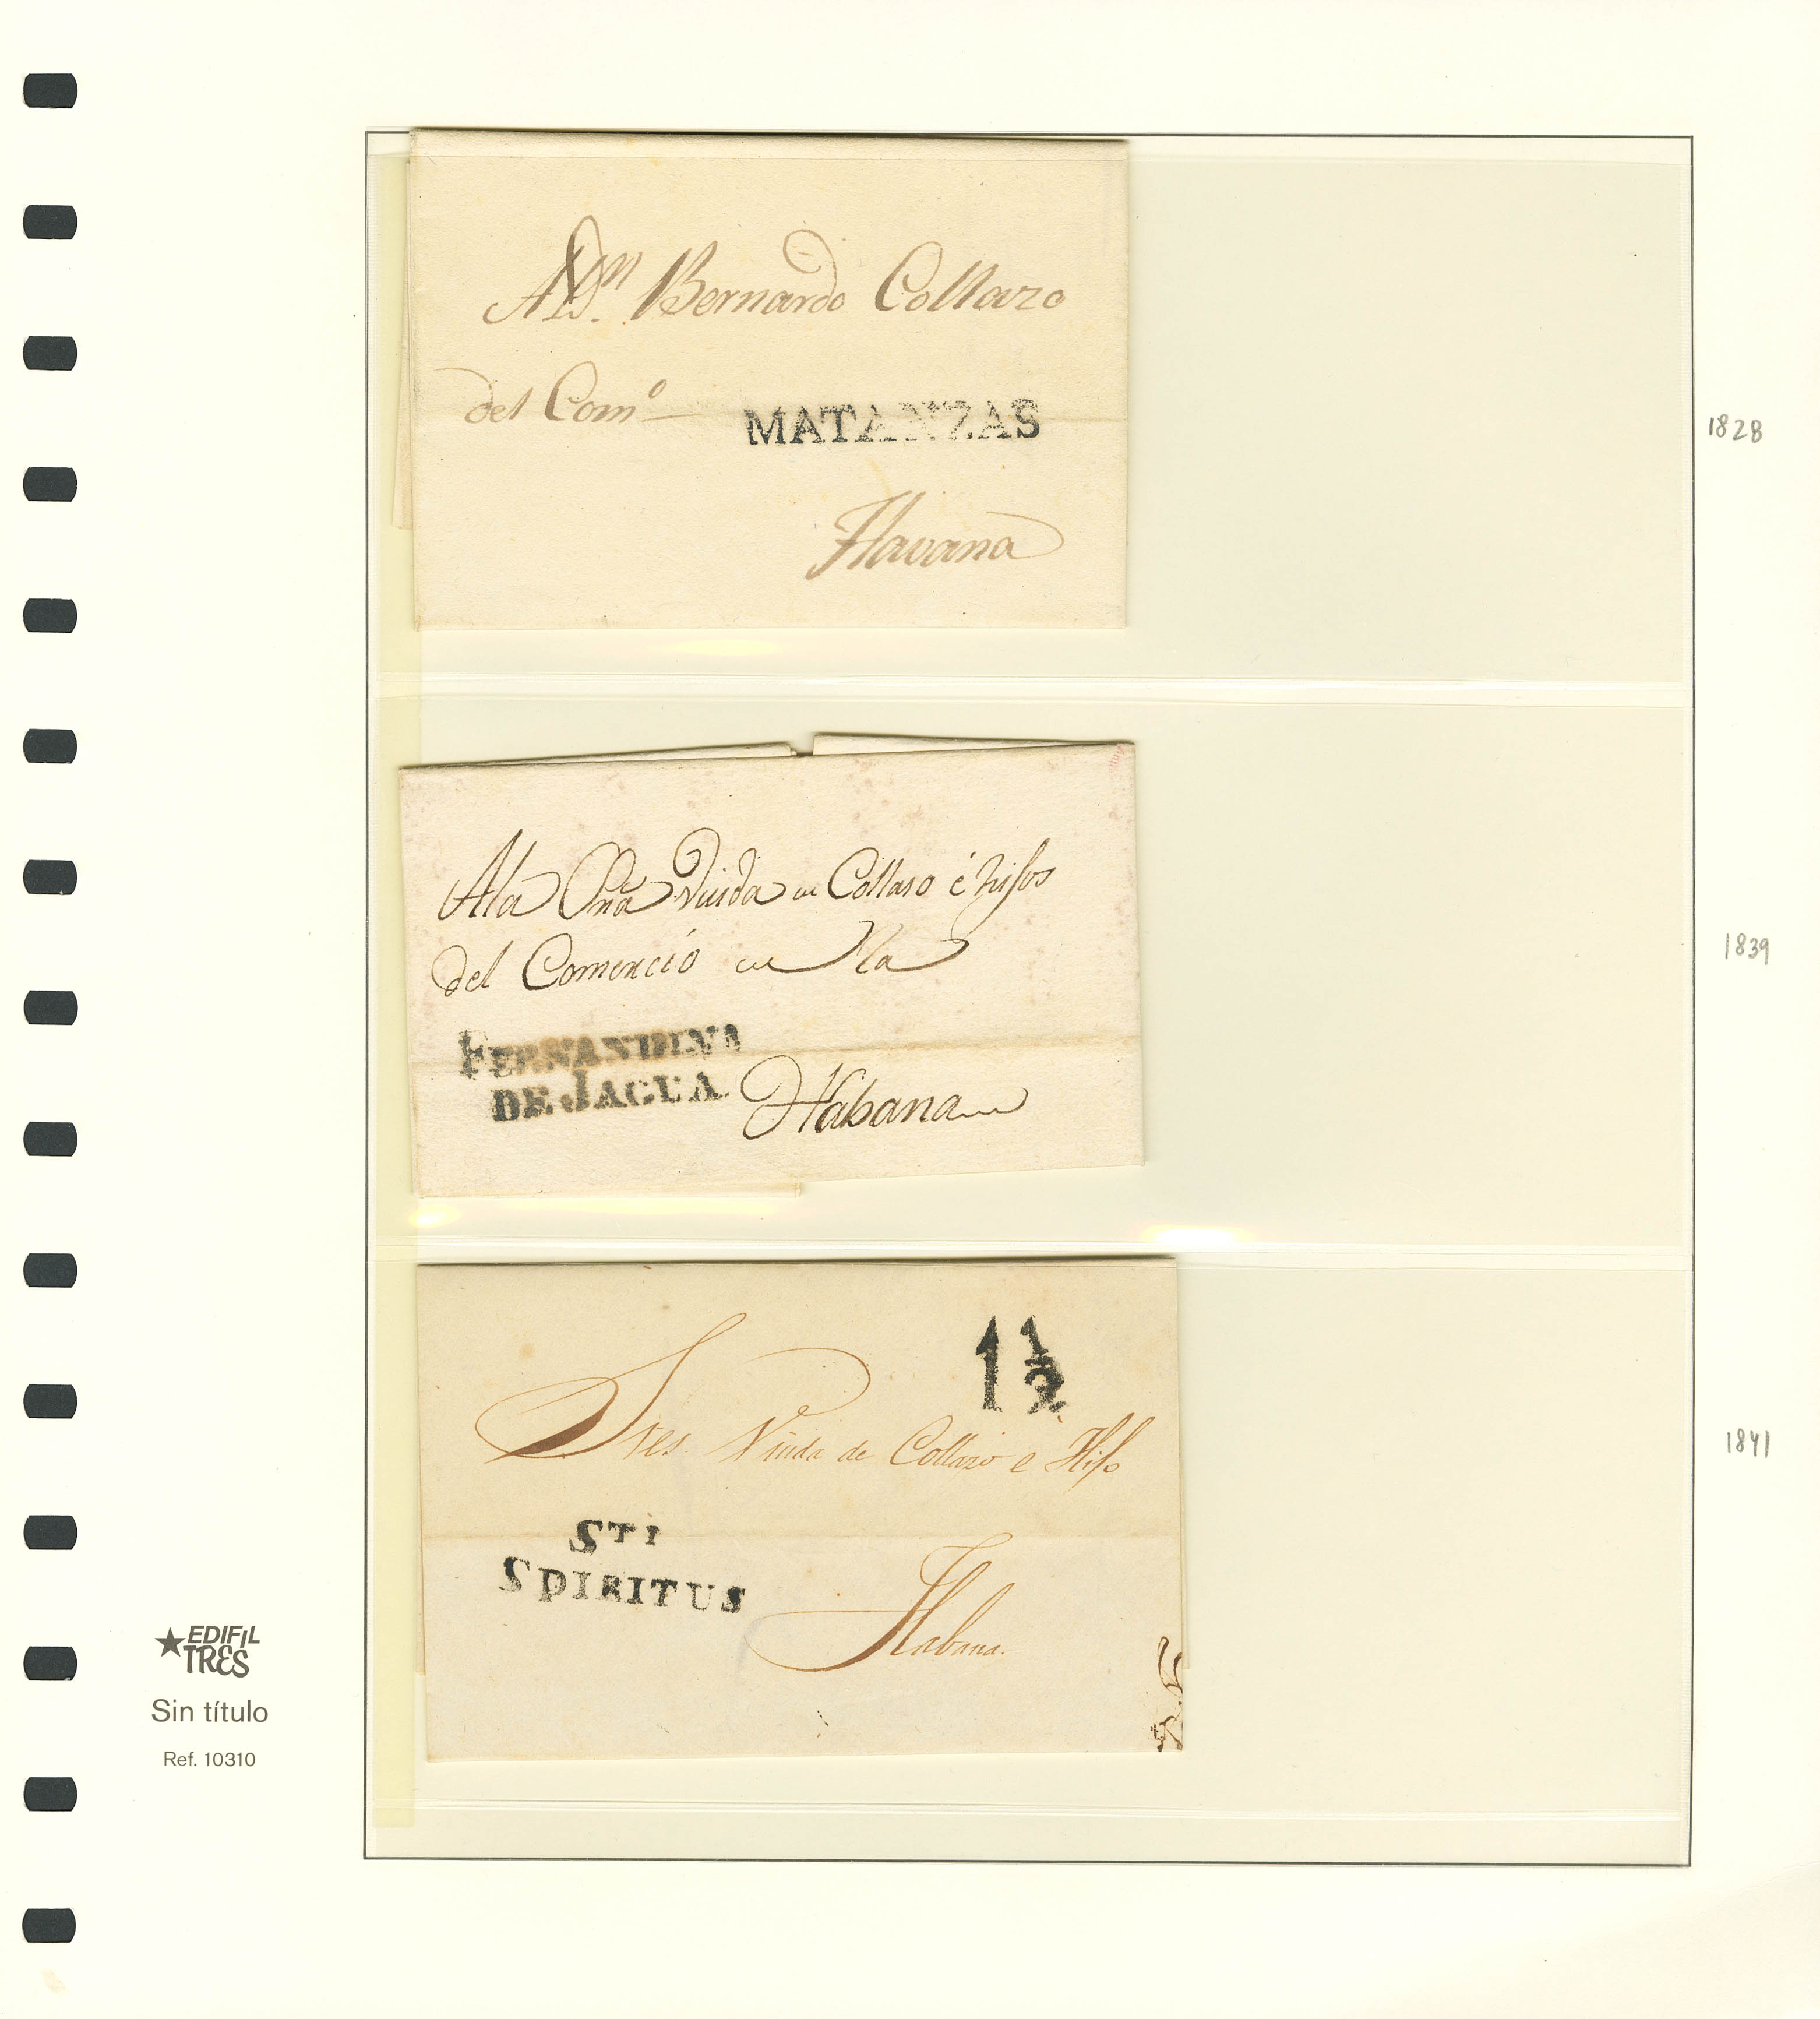 A Dn. Bernardo Collazo
del Como
MATANZAS
Havana
1828
A la Sra Viuda de Collaso é hijos
del Comercio en la
FERNANDINA
DE JAGUA.
Habana
1839
1 1/2
Sres. Viuda de Collazo e Hijo
STI
SPIRITUS
Habana.
1841
EDIFIL
TRES
Sin título
Ref. 10310